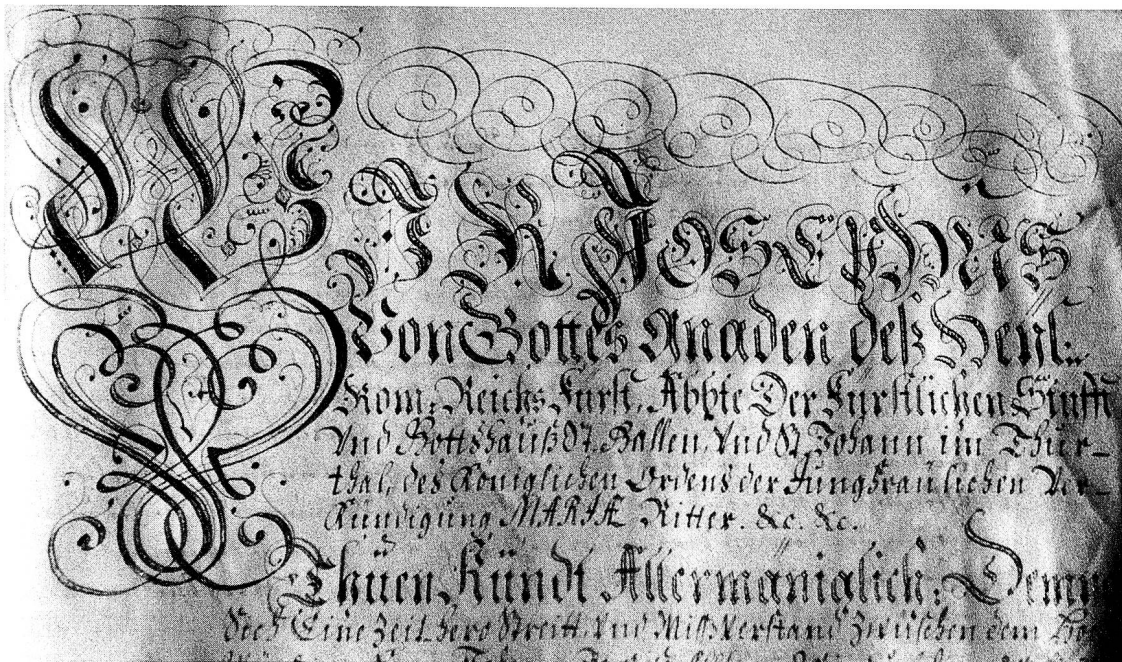 WIR JOSEPHUS
Von Gottes Gnaden deß Heyl:
Röm. Reichs Fürst, Abbte Der Fürstlichen Stifft
Vnd Gottshauß St. Gallen, Vnd St. Johann im Thur-
thal, des Königlichen Ordens der Jungfraülichen Ver-
Kündigung MARIÆ Ritter. &c. &c.
Thuen Kundt Allermäniglich: Demn
Eine Zeit hero Streitt Vnd Mißverstand Zwischen dem